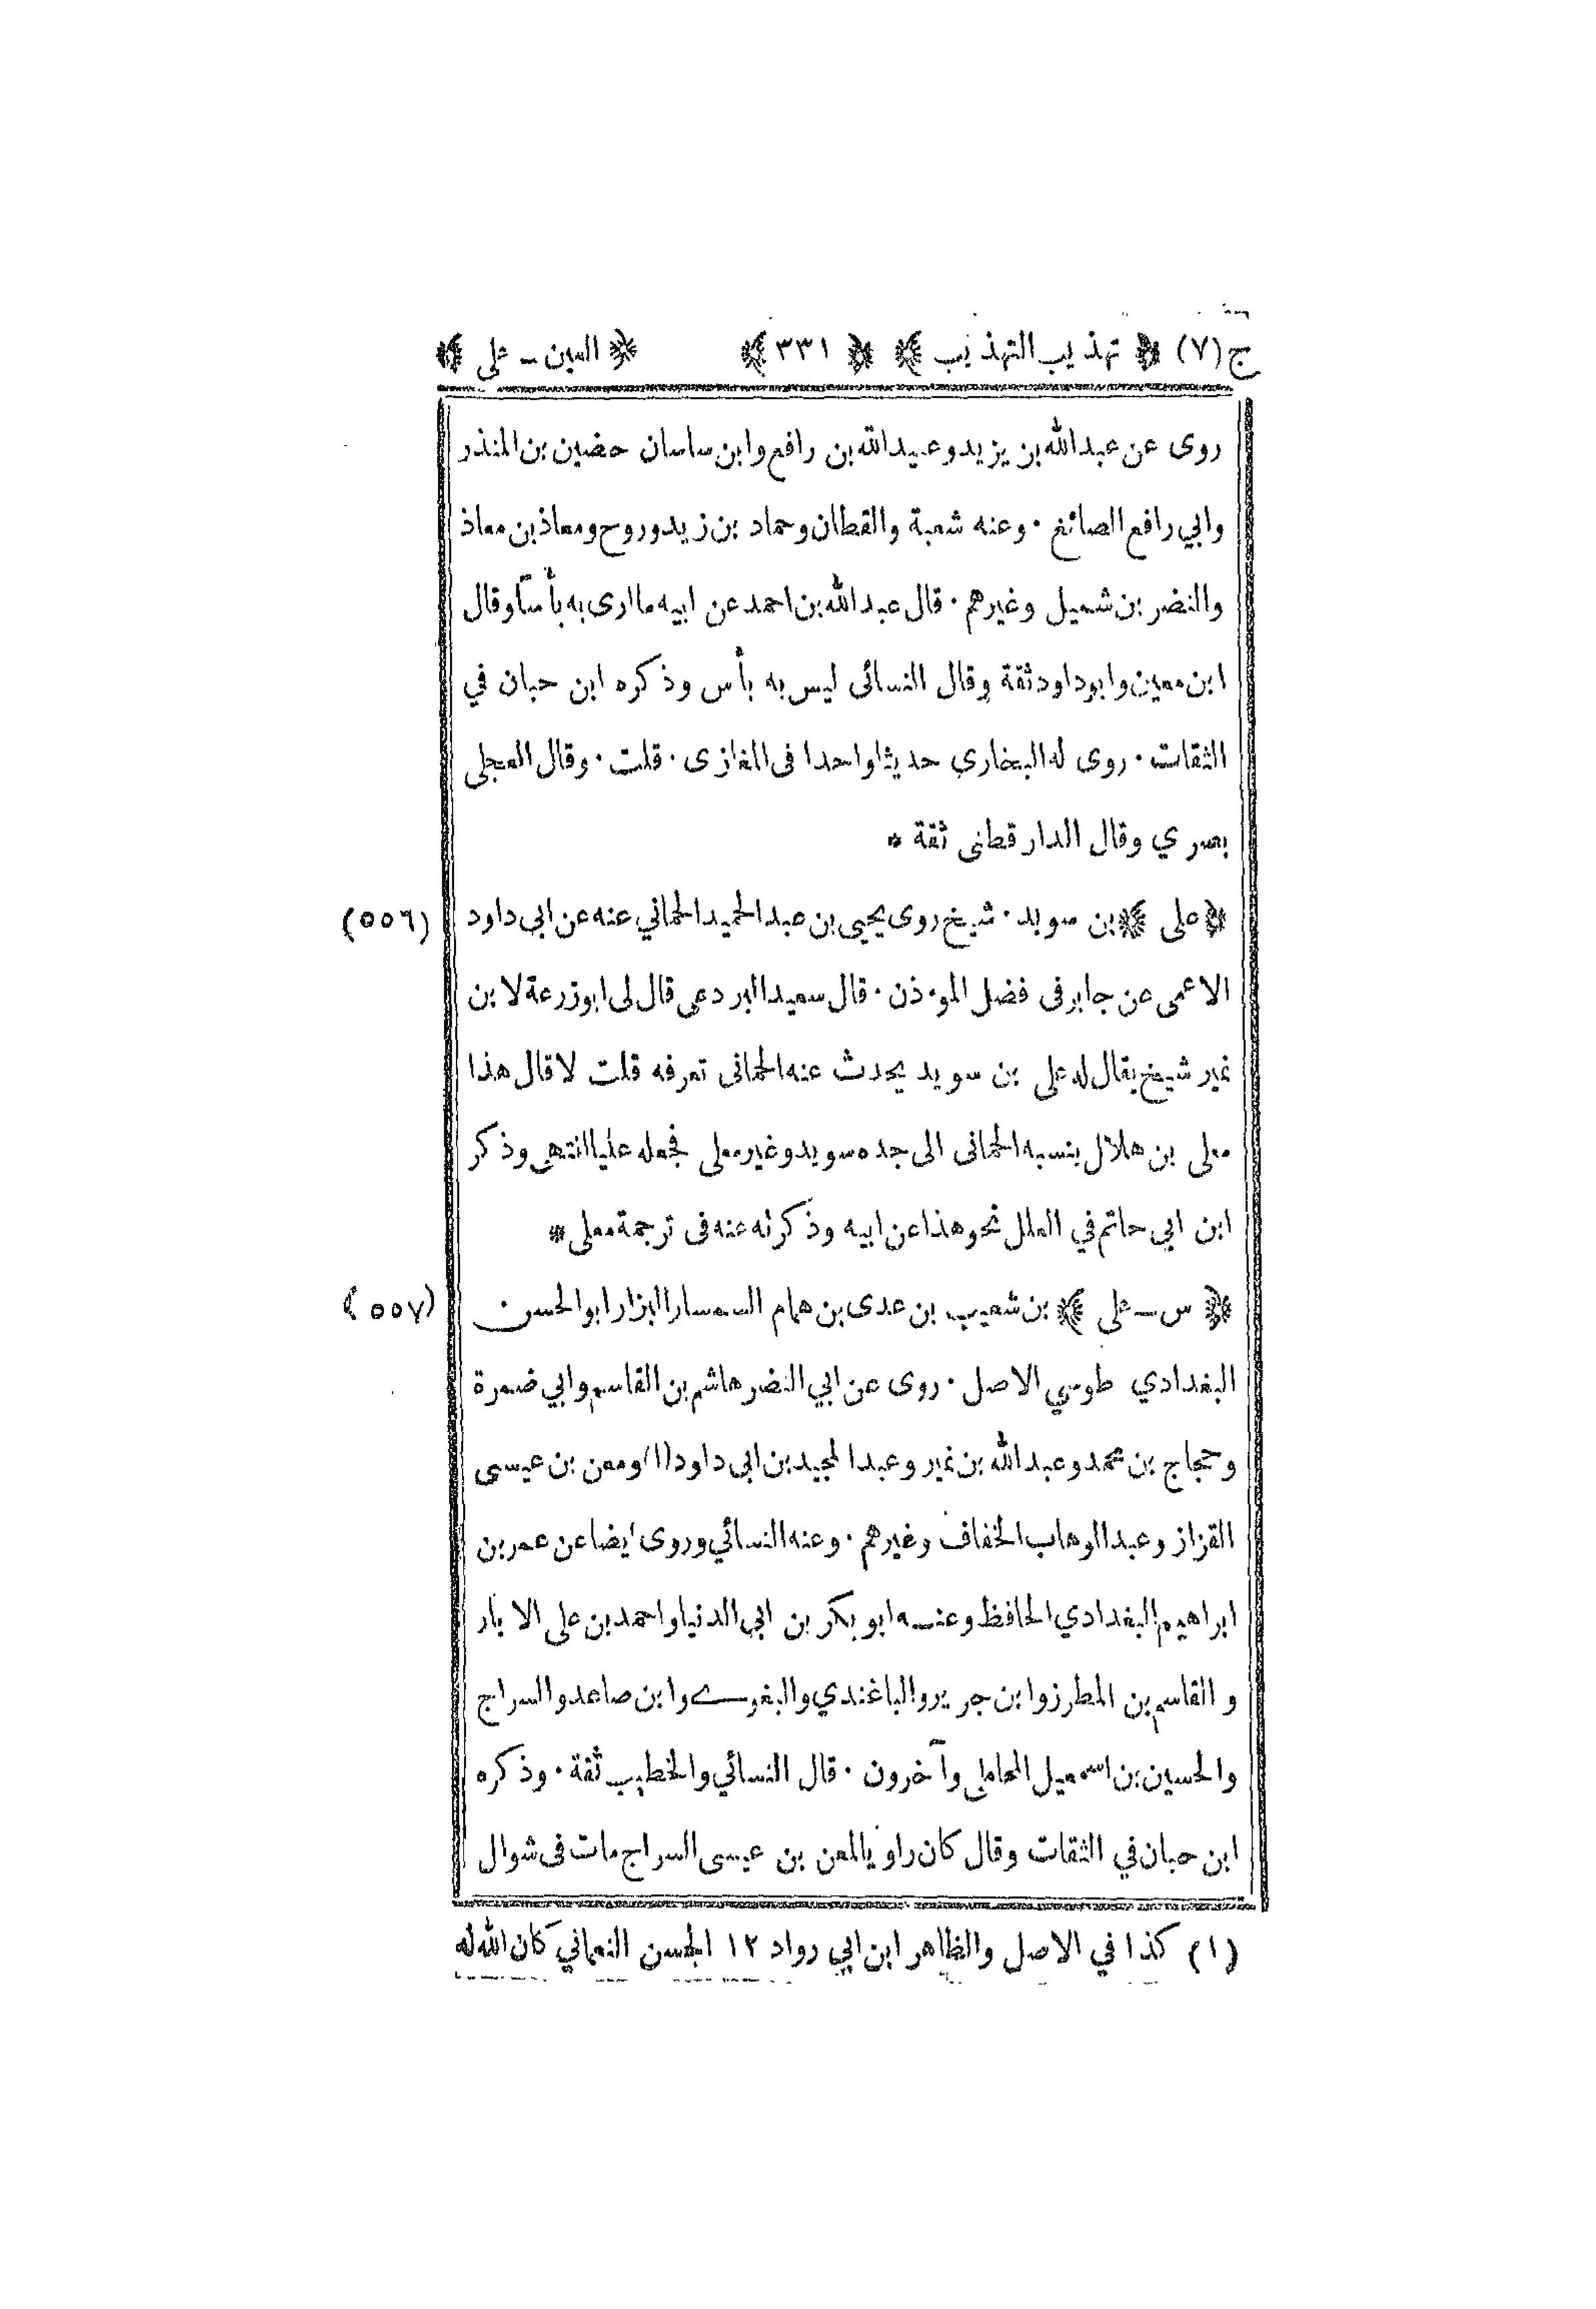 ج(٧) ﴿ تهذيب التهذيب ﴾ ﴿ ٣٣١ ﴾ ﴿ العين - على ﴾
روى عن عبدالله بن يزيد وعبيدالله بن رافع وابن ساسان حضين بن المنذر
وابي رافع الصائغ ٠ وعنه شعبة والقطان وحماد بن زيد وروح ومعاذ بن معاذ
والنضر بن شميل وغيرهم ٠ قال عبدالله بن احمد عن ابيه ما ارى به بأساً وقال
ابن معين وابو داود ثقة وقال النسائى ليس به بأس وذكره ابن حبان في
الثقات ٠ روى له البخاري حديثا واحدا فى المغازى ٠ قلت ٠ وقال العجلى
بصري وقال الدارقطنى ثقة *
(٥٥٦) ﴿ على ﴾ بن سويد ٠ شيخ روى يحيى بن عبدالحميد الحماني عنه عن ابى داود
الاعمى عن جابر فى فضل المؤذن ٠ قال سعيد البردعى قال لى ابو زرعة لابن
نمير شيخ يقال له على بن سويد يحدث عنه الحمانى تعرفه قلت لا قال هذا
معلى بن هلال ينسبه الحمانى الى جده سويد وغير معلى فجعله عليا انتهى وذكر
ابن ابي حاتم في العلل نحو هذا عن ابيه وذكرته عنه فى ترجمة معلى *
(٥٥٧) ﴿ س - على ﴾ بن شعيب بن عدى بن همام السمسار البزار ابو الحسن
البغدادي طوسي الاصل ٠ روى عن ابي النضر هاشم بن القاسم وابي ضمرة
وحجاج بن محمد وعبدالله بن نمير وعبدالمجيد بن ابى داود(١) ومعن بن عيسى
القزاز وعبدالوهاب الخفاف وغيرهم ٠ وعنه النسائي وروى ايضا عن عمر بن
ابراهيم البغدادي الحافظ وعنه ابو بكر بن ابي الدنيا واحمد بن على الابار
والقاسم بن المطرز وابن جرير والباغندي والبغوے وابن صاعد والسراج
والحسين بن اسمعيل المحاملي وآخرون ٠ قال النسائي والخطيب ثقة ٠ وذكره
ابن حبان في الثقات وقال كان راويا لمعن بن عيسى السراج مات فى شوال
(١) كذا في الاصل والظاهر ابن ابي رواد ١٢ الحسن النعماني كان الله له